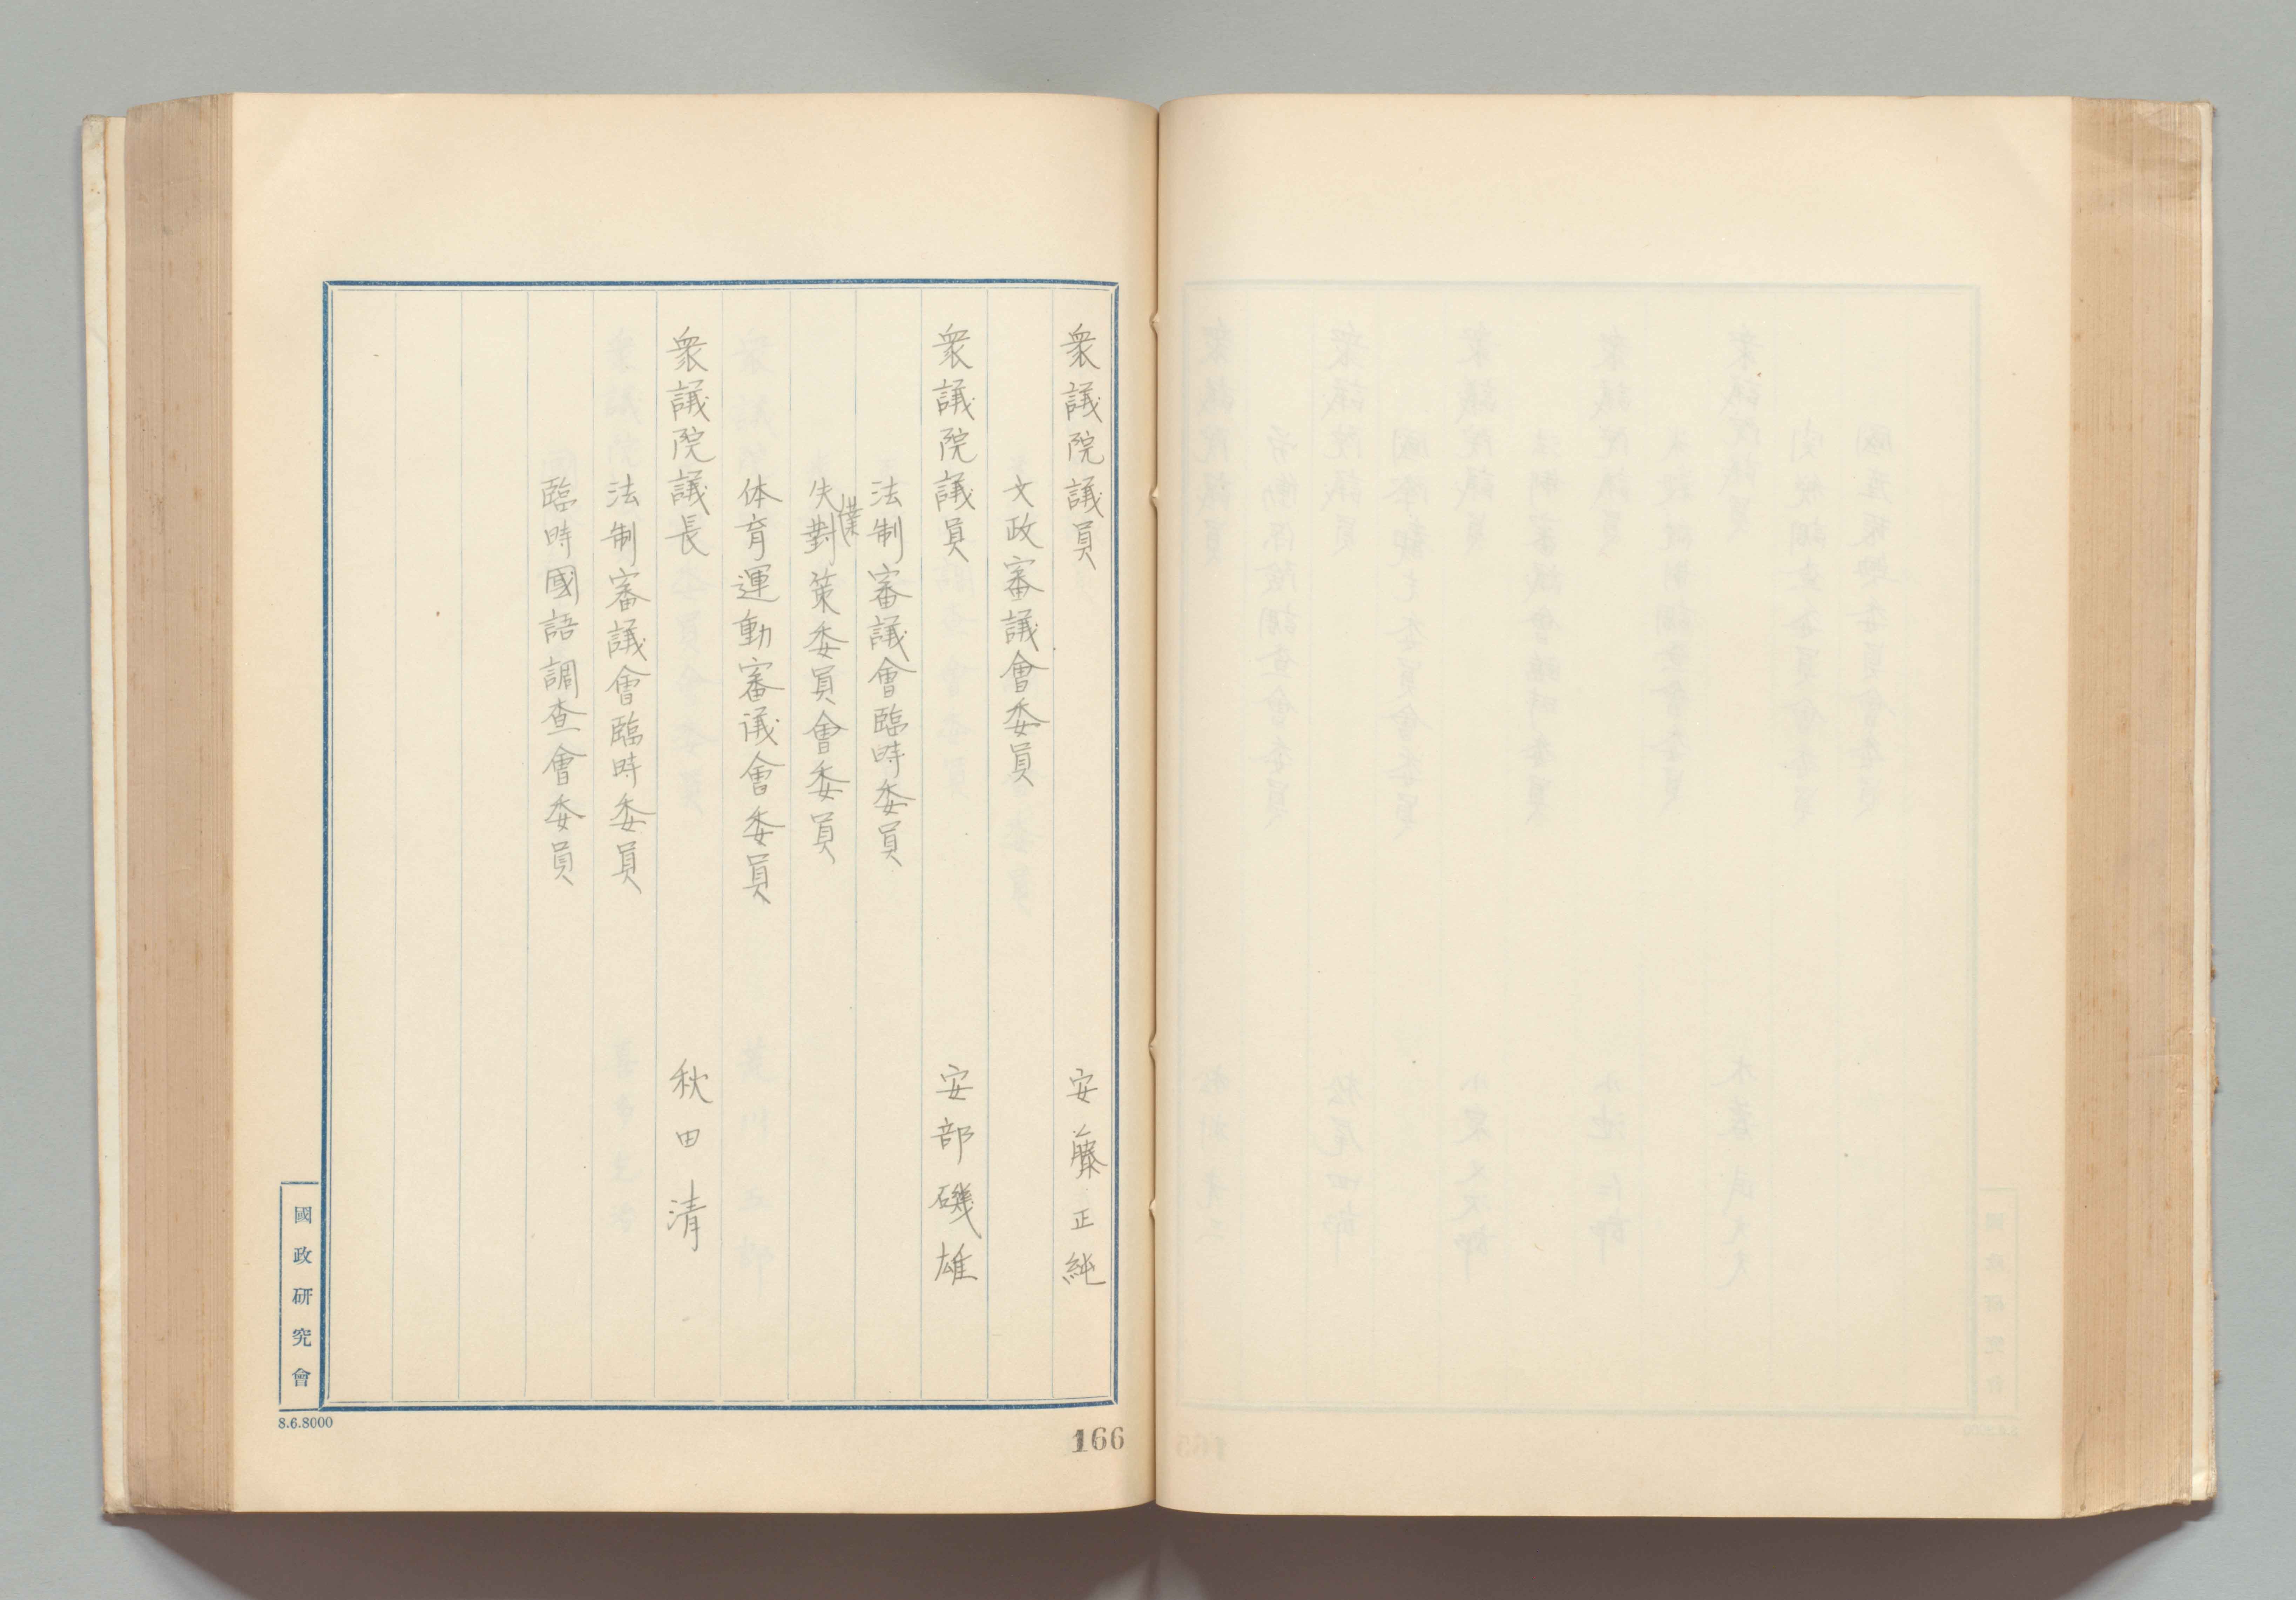 衆議院議員 安藤正純
文政審議會委員
衆議院議員 安部磯雄
法制審議會臨時委員
失業對策委員會委員
体育運動審议會委員
衆議院議長 秋田清
法制審議會臨時委員
臨時國語調查會委員
國政研究會
8.6.8000
166